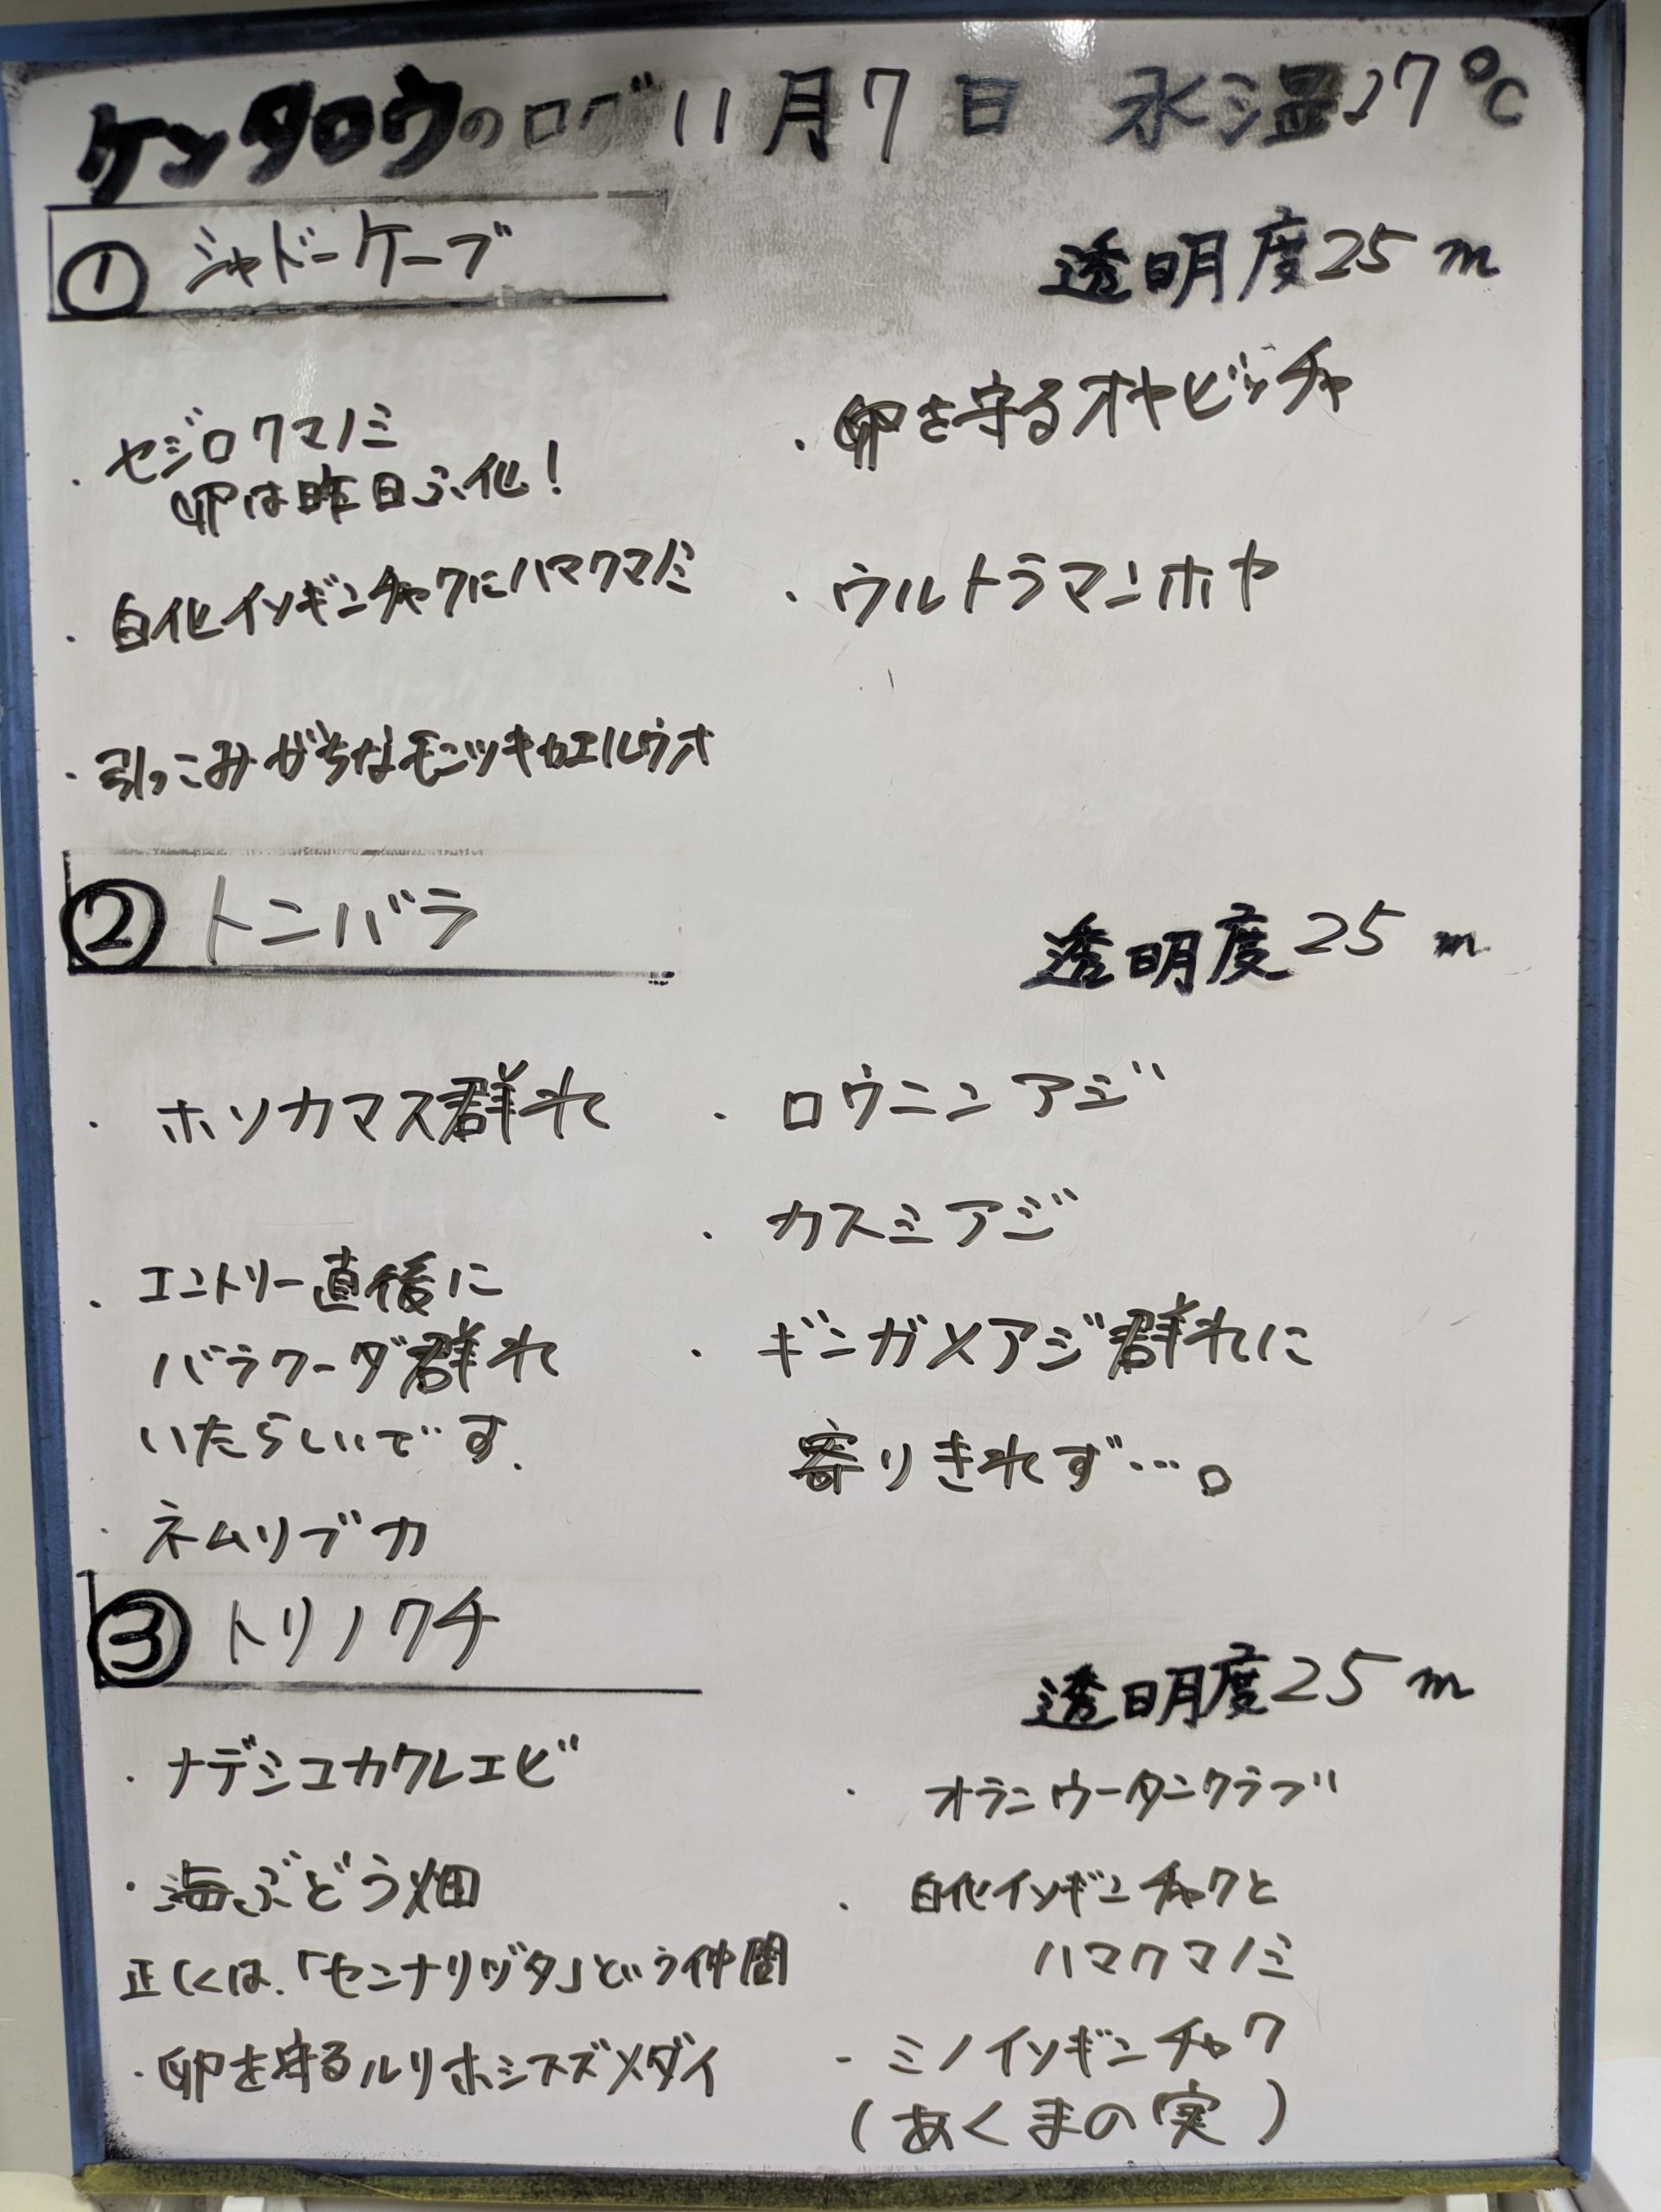 ケンタロウのログ 11月7日 水温27℃
① シャドーケーブ
透明度25m
・セジロクマノミ
卵は昨日ふ化!
・白化イソギンチャクにハマクマノミ
・引っこみがちなモンツキカエルウオ
・卵を守るオヤビッチャ
・ウルトラマンホヤ
② トンバラ
透明度25m
・ホソカマス群れ
・エントリー直後に
バラクーダ群れ
いたらしいです.
・ネムリブカ
・ロウニンアジ
・カスミアジ
・ギンガメアジ群れに
寄りきれず…。
③ トリノクチ
透明度25m
・ナデシコカクレエビ
・海ぶどう畑
正しくは、「センナリヅタ」という仲間
・卵を守るルリホシスズメダイ
・オランウータンクラブ
・白化イソギンチャクと
ハマクマノミ
・ミノイソギンチャク
(あくまの実)